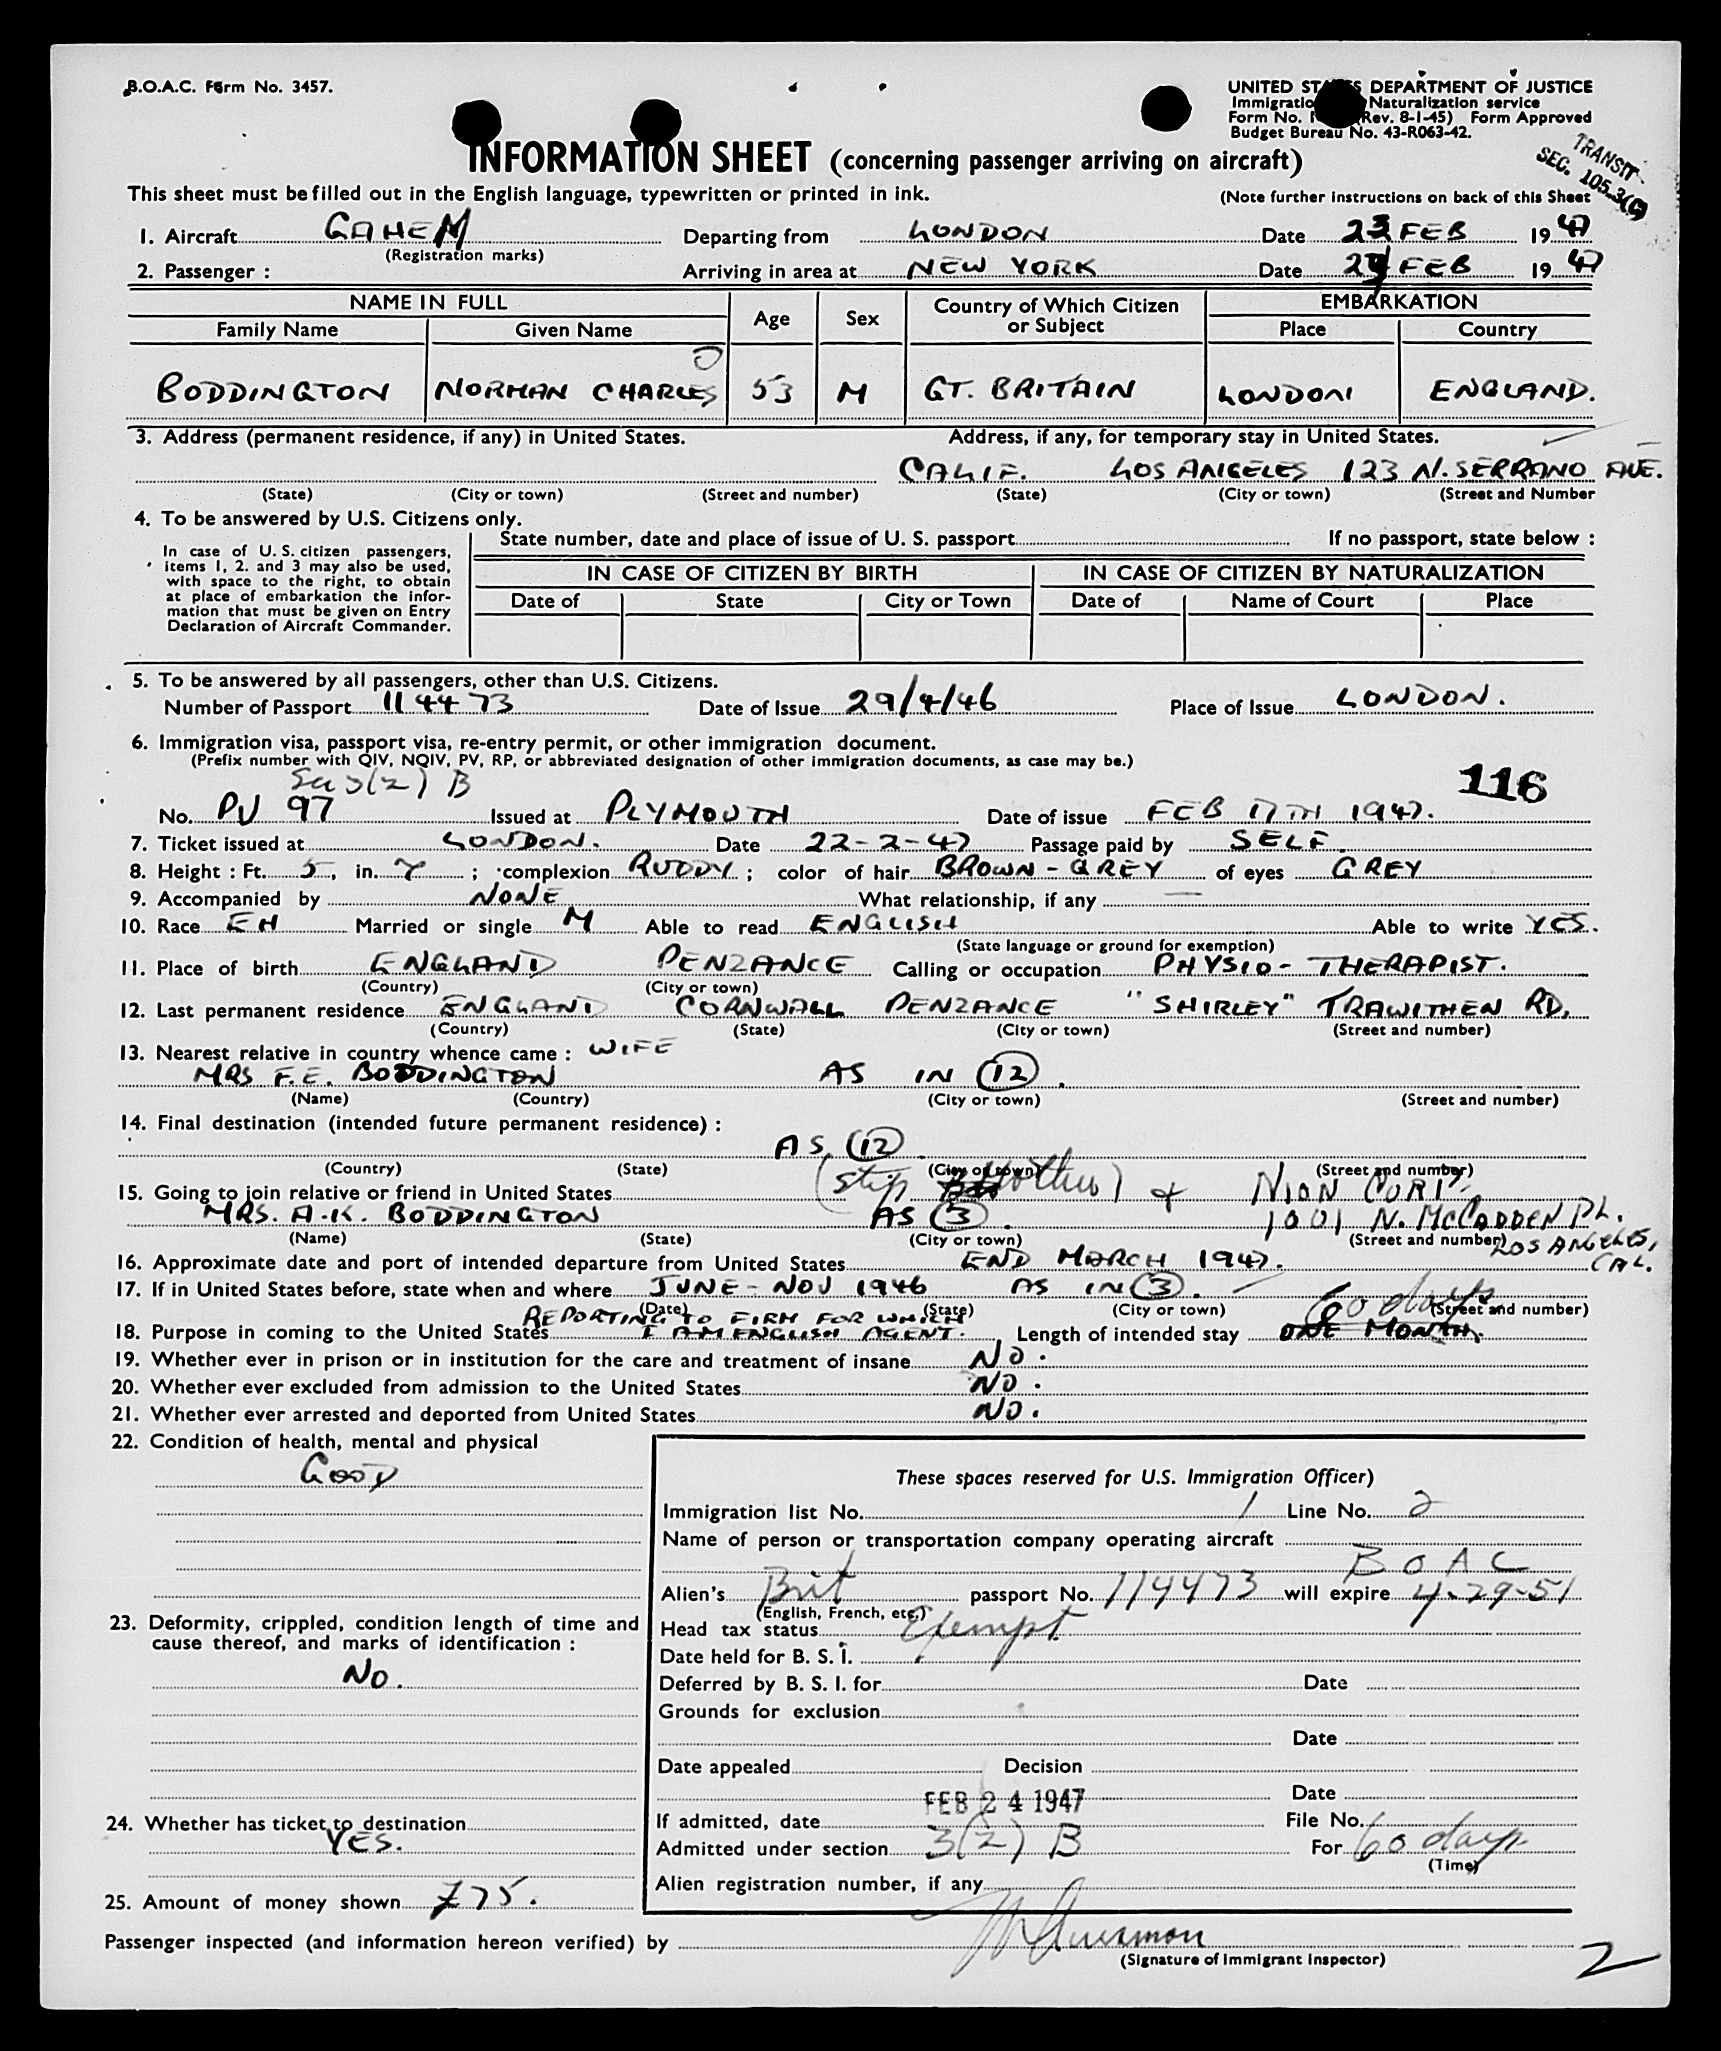 B.O.A.C. Form No. 3457.
UNITED STATES DEPARTMENT OF JUSTICE
Immigration Naturalization service
Form No. (Rev. 8-1-45) Form Approved
Budget Bureau No. 43-R063-42.
TRANSIT
SEC. 105-3(G)
INFORMATION SHEET (concerning passenger arriving on aircraft)
This sheet must be filled out in the English language, typewritten or printed in ink.
(Note further instructions on back of this Sheet
1. Aircraft GAHEM Departing from LONDON Date 23 FEB 1947
(Registration marks)
2. Passenger : Arriving in area at NEW YORK Date 24 FEB 1947
NAME IN FULL Age Sex Country of Which Citizen or Subject EMBARKATION
Family Name Given Name Place Country
BODDINGTON NORMAN CHARLES 53 M GT. BRITAIN LONDON ENGLAND.
3. Address (permanent residence, if any) in United States. Address, if any, for temporary stay in United States.
CALIF. LOS ANGELES 123 N. SERRANO AVE.
(State) (City or town) (Street and number) (State) (City or town) (Street and Number
4. To be answered by U.S. Citizens only.
In case of U.S. citizen passengers, items 1, 2. and 3 may also be used, with space to the right, to obtain at place of embarkation the information that must be given on Entry Declaration of Aircraft Commander.
State number, date and place of issue of U. S. passport If no passport, state below :
IN CASE OF CITIZEN BY BIRTH IN CASE OF CITIZEN BY NATURALIZATION
Date of State City or Town Date of Name of Court Place
5. To be answered by all passengers, other than U.S. Citizens.
Number of Passport 114473 Date of Issue 29/4/46 Place of Issue LONDON.
6. Immigration visa, passport visa, re-entry permit, or other immigration document.
(Prefix number with QIV, NQIV, PV, RP, or abbreviated designation of other immigration documents, as case may be.)
Sec 3(2) B
116
No. PV 97 Issued at PLYMOUTH Date of issue FEB 17TH 1947.
7. Ticket issued at LONDON. Date 22-2-47 Passage paid by SELF.
8. Height : Ft. 5, in. 7 ; complexion RUDDY ; color of hair BROWN - GREY of eyes GREY
9. Accompanied by NONE What relationship, if any —
10. Race EH Married or single M Able to read ENGLISH Able to write YES.
(State language or ground for exemption)
11. Place of birth ENGLAND PENZANCE Calling or occupation PHYSIO-THERAPIST.
(Country) (City or town)
12. Last permanent residence ENGLAND CORNWALL PENZANCE "SHIRLEY" TRAWITHEN RD,
(Country) (State) (City or town) (Street and number)
13. Nearest relative in country whence came : WIFE
MRS F.E. BODDINGTON AS IN (12).
(Name) (Country) (City or town) (Street and number)
14. Final destination (intended future permanent residence) :
AS (12).
(Country) (State) (City or town) (Street and number)
15. Going to join relative or friend in United States (Step Mother) & NION CURIT
MRS. A.K. BODDINGTON AS (3). 1001 N. McCADDEN PL.
(Name) (State) (City or town) (Street and number) LOS ANGELES,
16. Approximate date and port of intended departure from United States END MARCH 1947. CAL.
17. If in United States before, state when and where JUNE - NOV 1946 AS IN (3).
(Date) (State) (City or town) (Street and number)
REPORTING TO FIRM FOR WHICH 60 days
18. Purpose in coming to the United States I AM ENGLISH AGENT. Length of intended stay ONE MONTH.
19. Whether ever in prison or in institution for the care and treatment of insane NO.
20. Whether ever excluded from admission to the United States NO.
21. Whether ever arrested and deported from United States NO.
22. Condition of health, mental and physical
GOOD
23. Deformity, crippled, condition length of time and cause thereof, and marks of identification :
NO.
24. Whether has ticket to destination
YES.
25. Amount of money shown £75.
These spaces reserved for U.S. Immigration Officer)
Immigration list No. 1 Line No. 2
Name of person or transportation company operating aircraft
BOAC
Alien's Brit passport No. 114473 will expire 4-29-51
(English, French, etc.)
Head tax status Exempt
Date held for B. S. I.
Deferred by B. S. I. for Date
Grounds for exclusion
Date
Date appealed Decision
Date
FEB 24 1947
If admitted, date File No.
Admitted under section 3(2) B For 60 days
(Time)
Alien registration number, if any
Passenger inspected (and information hereon verified) by
(Signature of Immigrant Inspector)
2